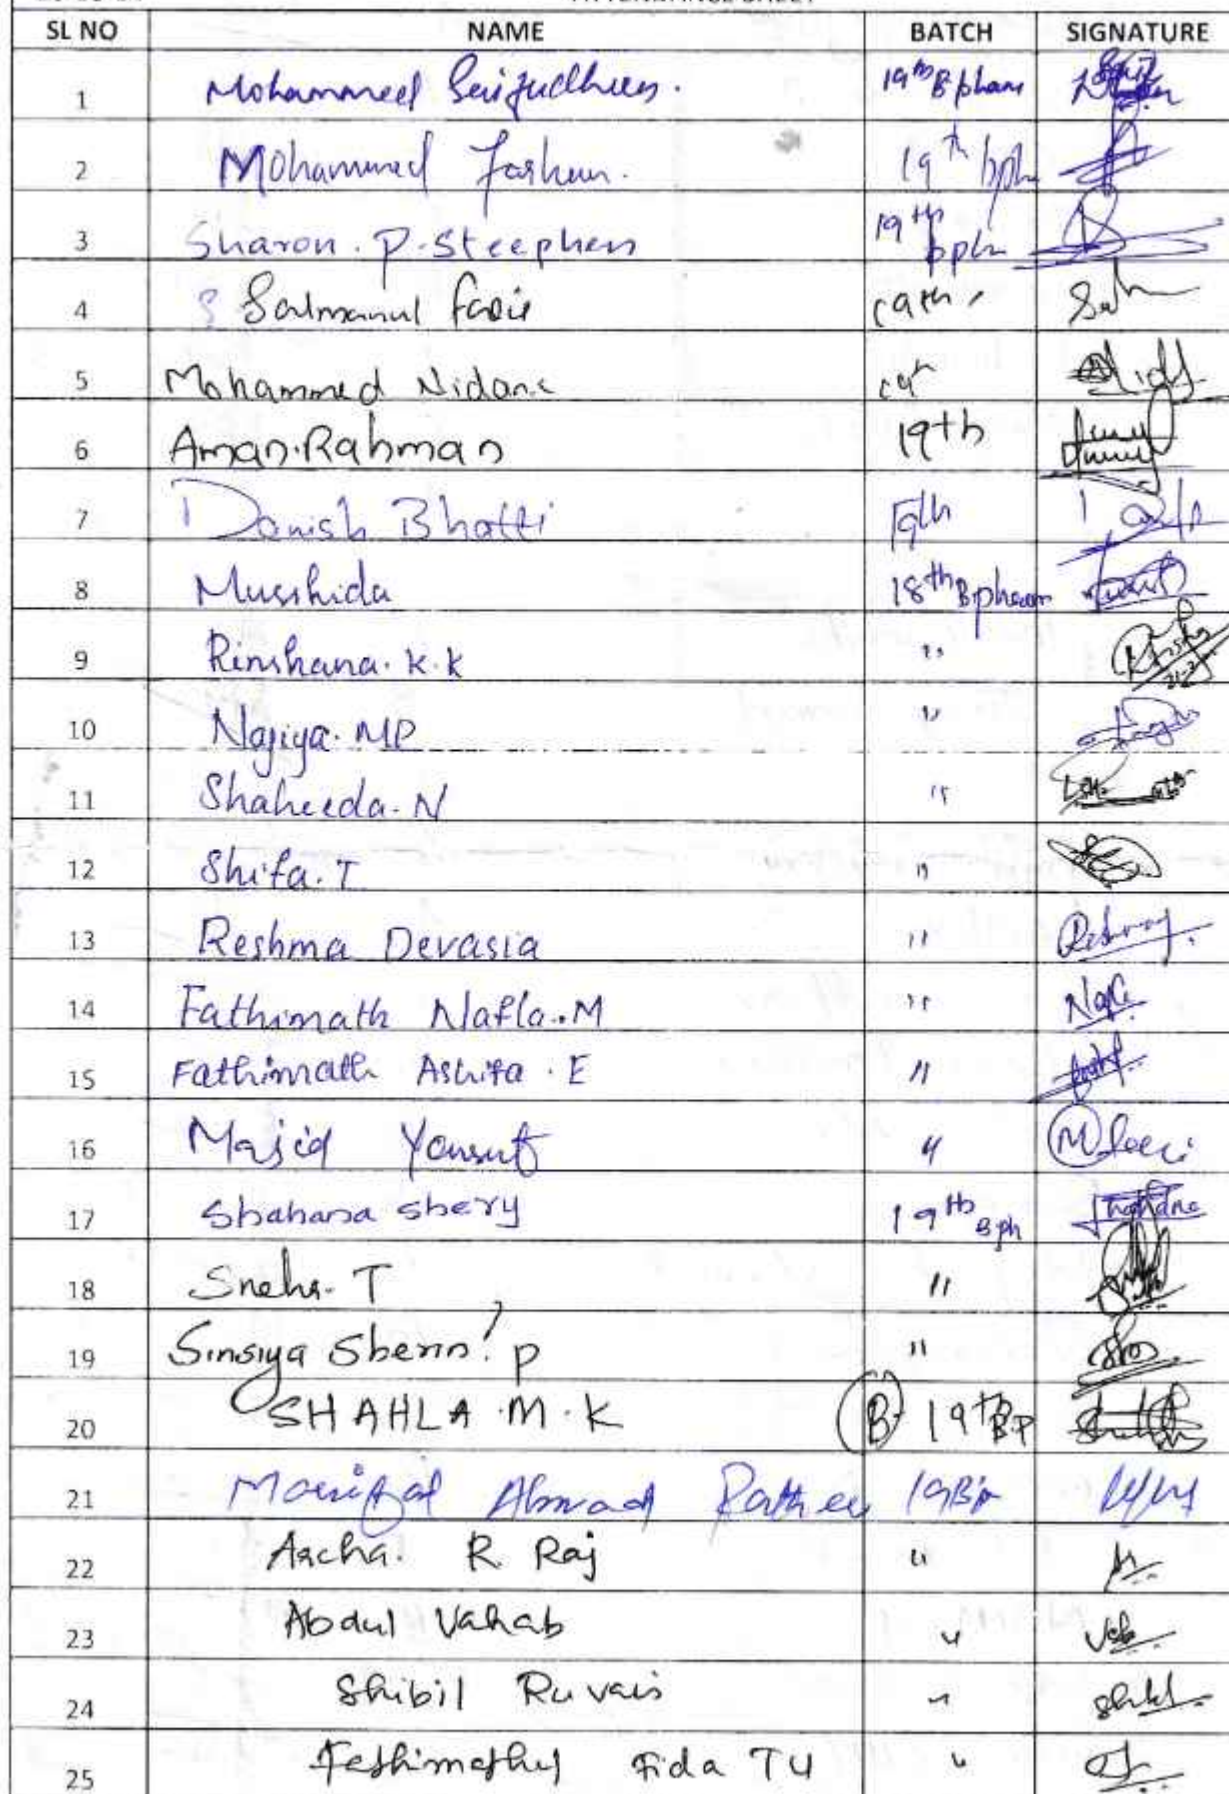 SL NO NAME BATCH SIGNATURE
1 Mohammed 19th B pham
2 Mohammed 19th bph
3 Sharon. P. Steephen 19th bph
4 Salmanul Faris 19th
5 Mohammed Nidan 19th
6 Aman.Rahman 19th
7 Danish Bhatti 19th
8 Murshida 18th Bpham
9 Rinshana. K.K "
10 Najiya. MP "
11 Shaheeda. N "
12 Shifa. T "
13 Reshma Devasia " Reshma
14 Fathimath Nafla. M "
15 Fathimath Ashifa . E "
16 Majid Yousuf "
17 Shahana shery 19th Bph Shahana
18 Sneha. T "
19 Sinsiya Sherin. P "
20 SHAHLA . M . K B 19th B.P
21 Ahmad 19
22 Archa. R Raj "
23 Abdul Vahab "
24 Shibil Ruvais "
25 Fida TU "